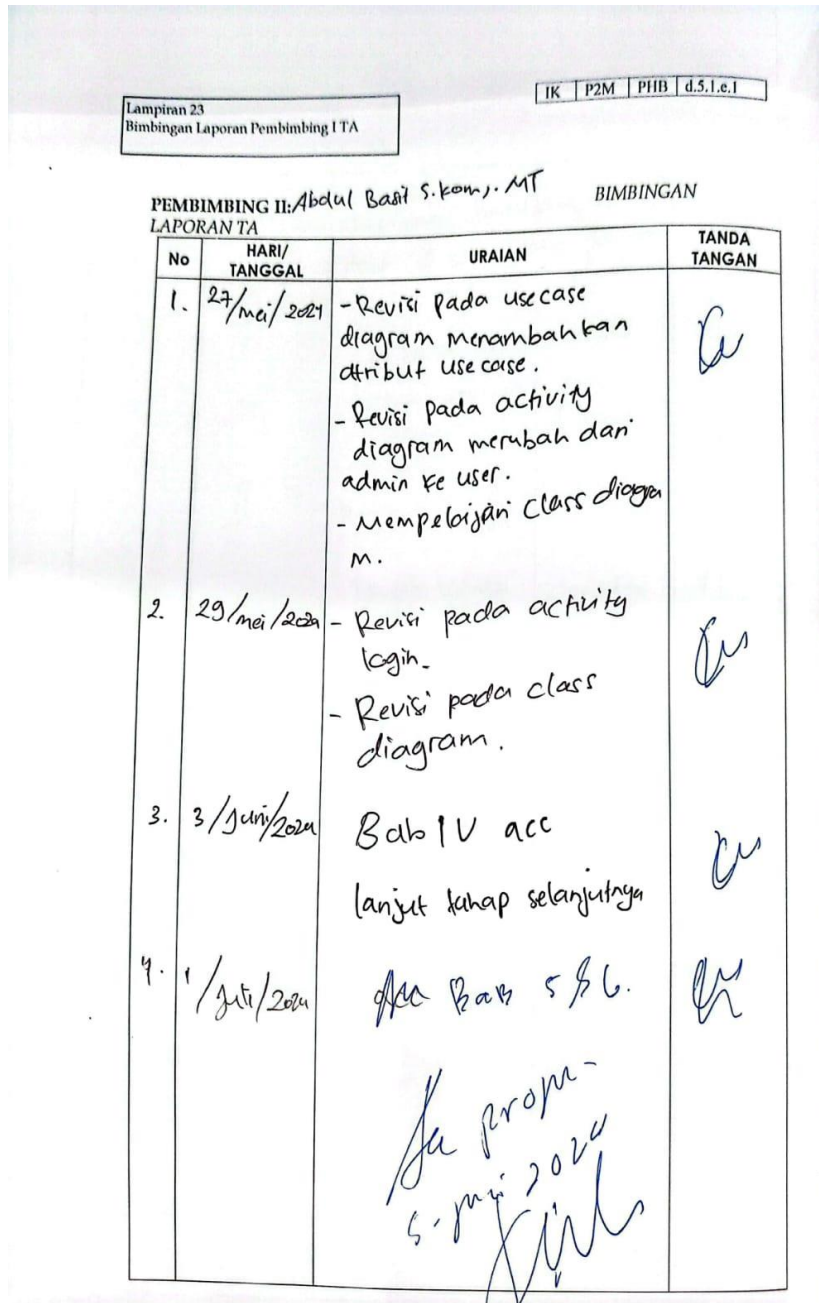 IK P2M PHB d.5.1.e.1
Lampiran 23
Bimbingan Laporan Pembimbing I TA
PEMBIMBING II: Abdul Basit S.kom,. MT BIMBINGAN
LAPORAN TA
No HARI/ TANGGAL URAIAN TANDA TANGAN
1. 27/mei/2024 - Revisi pada usecase
diagram menambahkan
atribut use case.
- Revisi pada activity
diagram merubah dari
admin ke user.
- Mempelajari class diagra
m.
2. 29/mei/2024 - Revisi pada activity
login.
- Revisi pada class
diagram.
3. 3/Juni/2024 Bab IV acc
lanjut tahap selanjutnya
4. 1/Juli/2024 Acc Bab 5 & 6.
5 - 2024